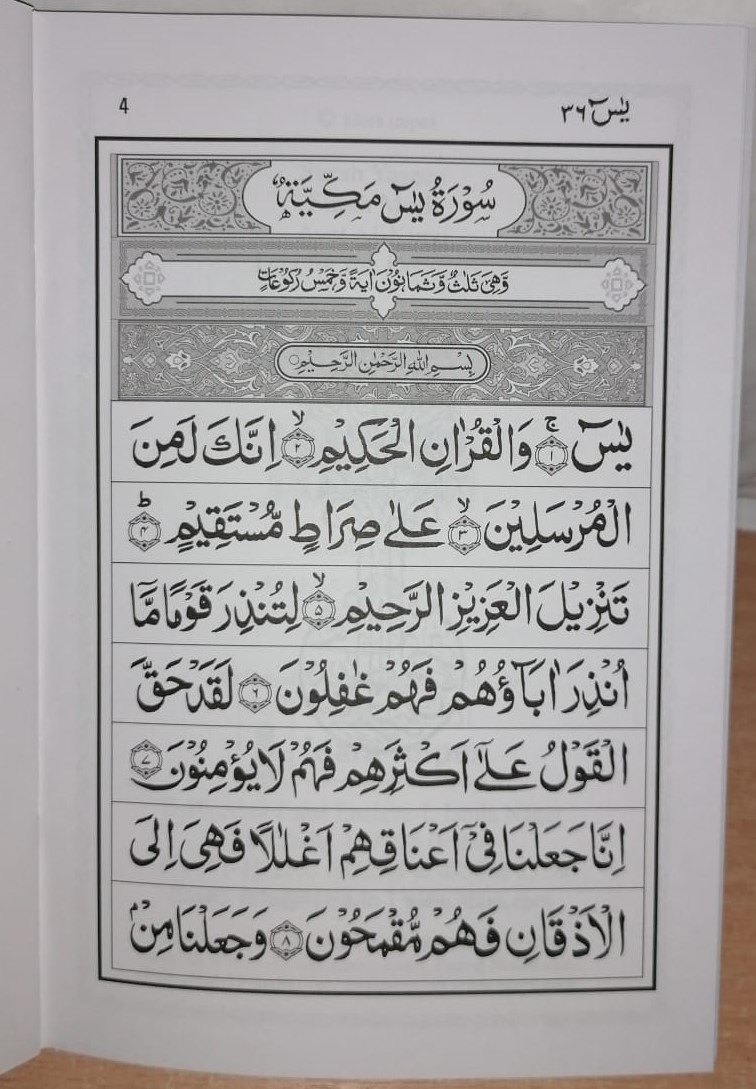 4
يٰسٓ ٣٦
سُوْرَةُ يٰسٓ مَكِّيَّةٌ
وَّهِيَ ثَلٰثٌ وَّثَمَانُوْنَ اٰيَةً وَّخَمْسُ رُكُوْعَاتٍ
بِسْمِ اللهِ الرَّحْمٰنِ الرَّحِيْمِ
يٰسٓ ۚ ﴿١﴾ وَالْقُرْاٰنِ الْحَكِيْمِ ۙ ﴿٢﴾ اِنَّكَ لَمِنَ
الْمُرْسَلِيْنَ ۙ ﴿٣﴾ عَلٰى صِرَاطٍ مُّسْتَقِيْمٍ ؕ ﴿۴﴾
تَنْزِيْلَ الْعَزِيْزِ الرَّحِيْمِ ۙ ﴿۵﴾ لِتُنْذِرَ قَوْمًا مَّاۤ
اُنْذِرَ اٰبَآؤُهُمْ فَهُمْ غٰفِلُوْنَ ﴿٦﴾ لَقَدْ حَقَّ
الْقَوْلُ عَلٰٓى اَكْثَرِهِمْ فَهُمْ لَا يُؤْمِنُوْنَ ﴿٧﴾
اِنَّا جَعَلْنَا فِيْۤ اَعْنَاقِهِمْ اَغْلٰلًا فَهِيَ اِلَى
الْاَذْقَانِ فَهُمْ مُّقْمَحُوْنَ ﴿٨﴾ وَجَعَلْنَا مِنْۢ